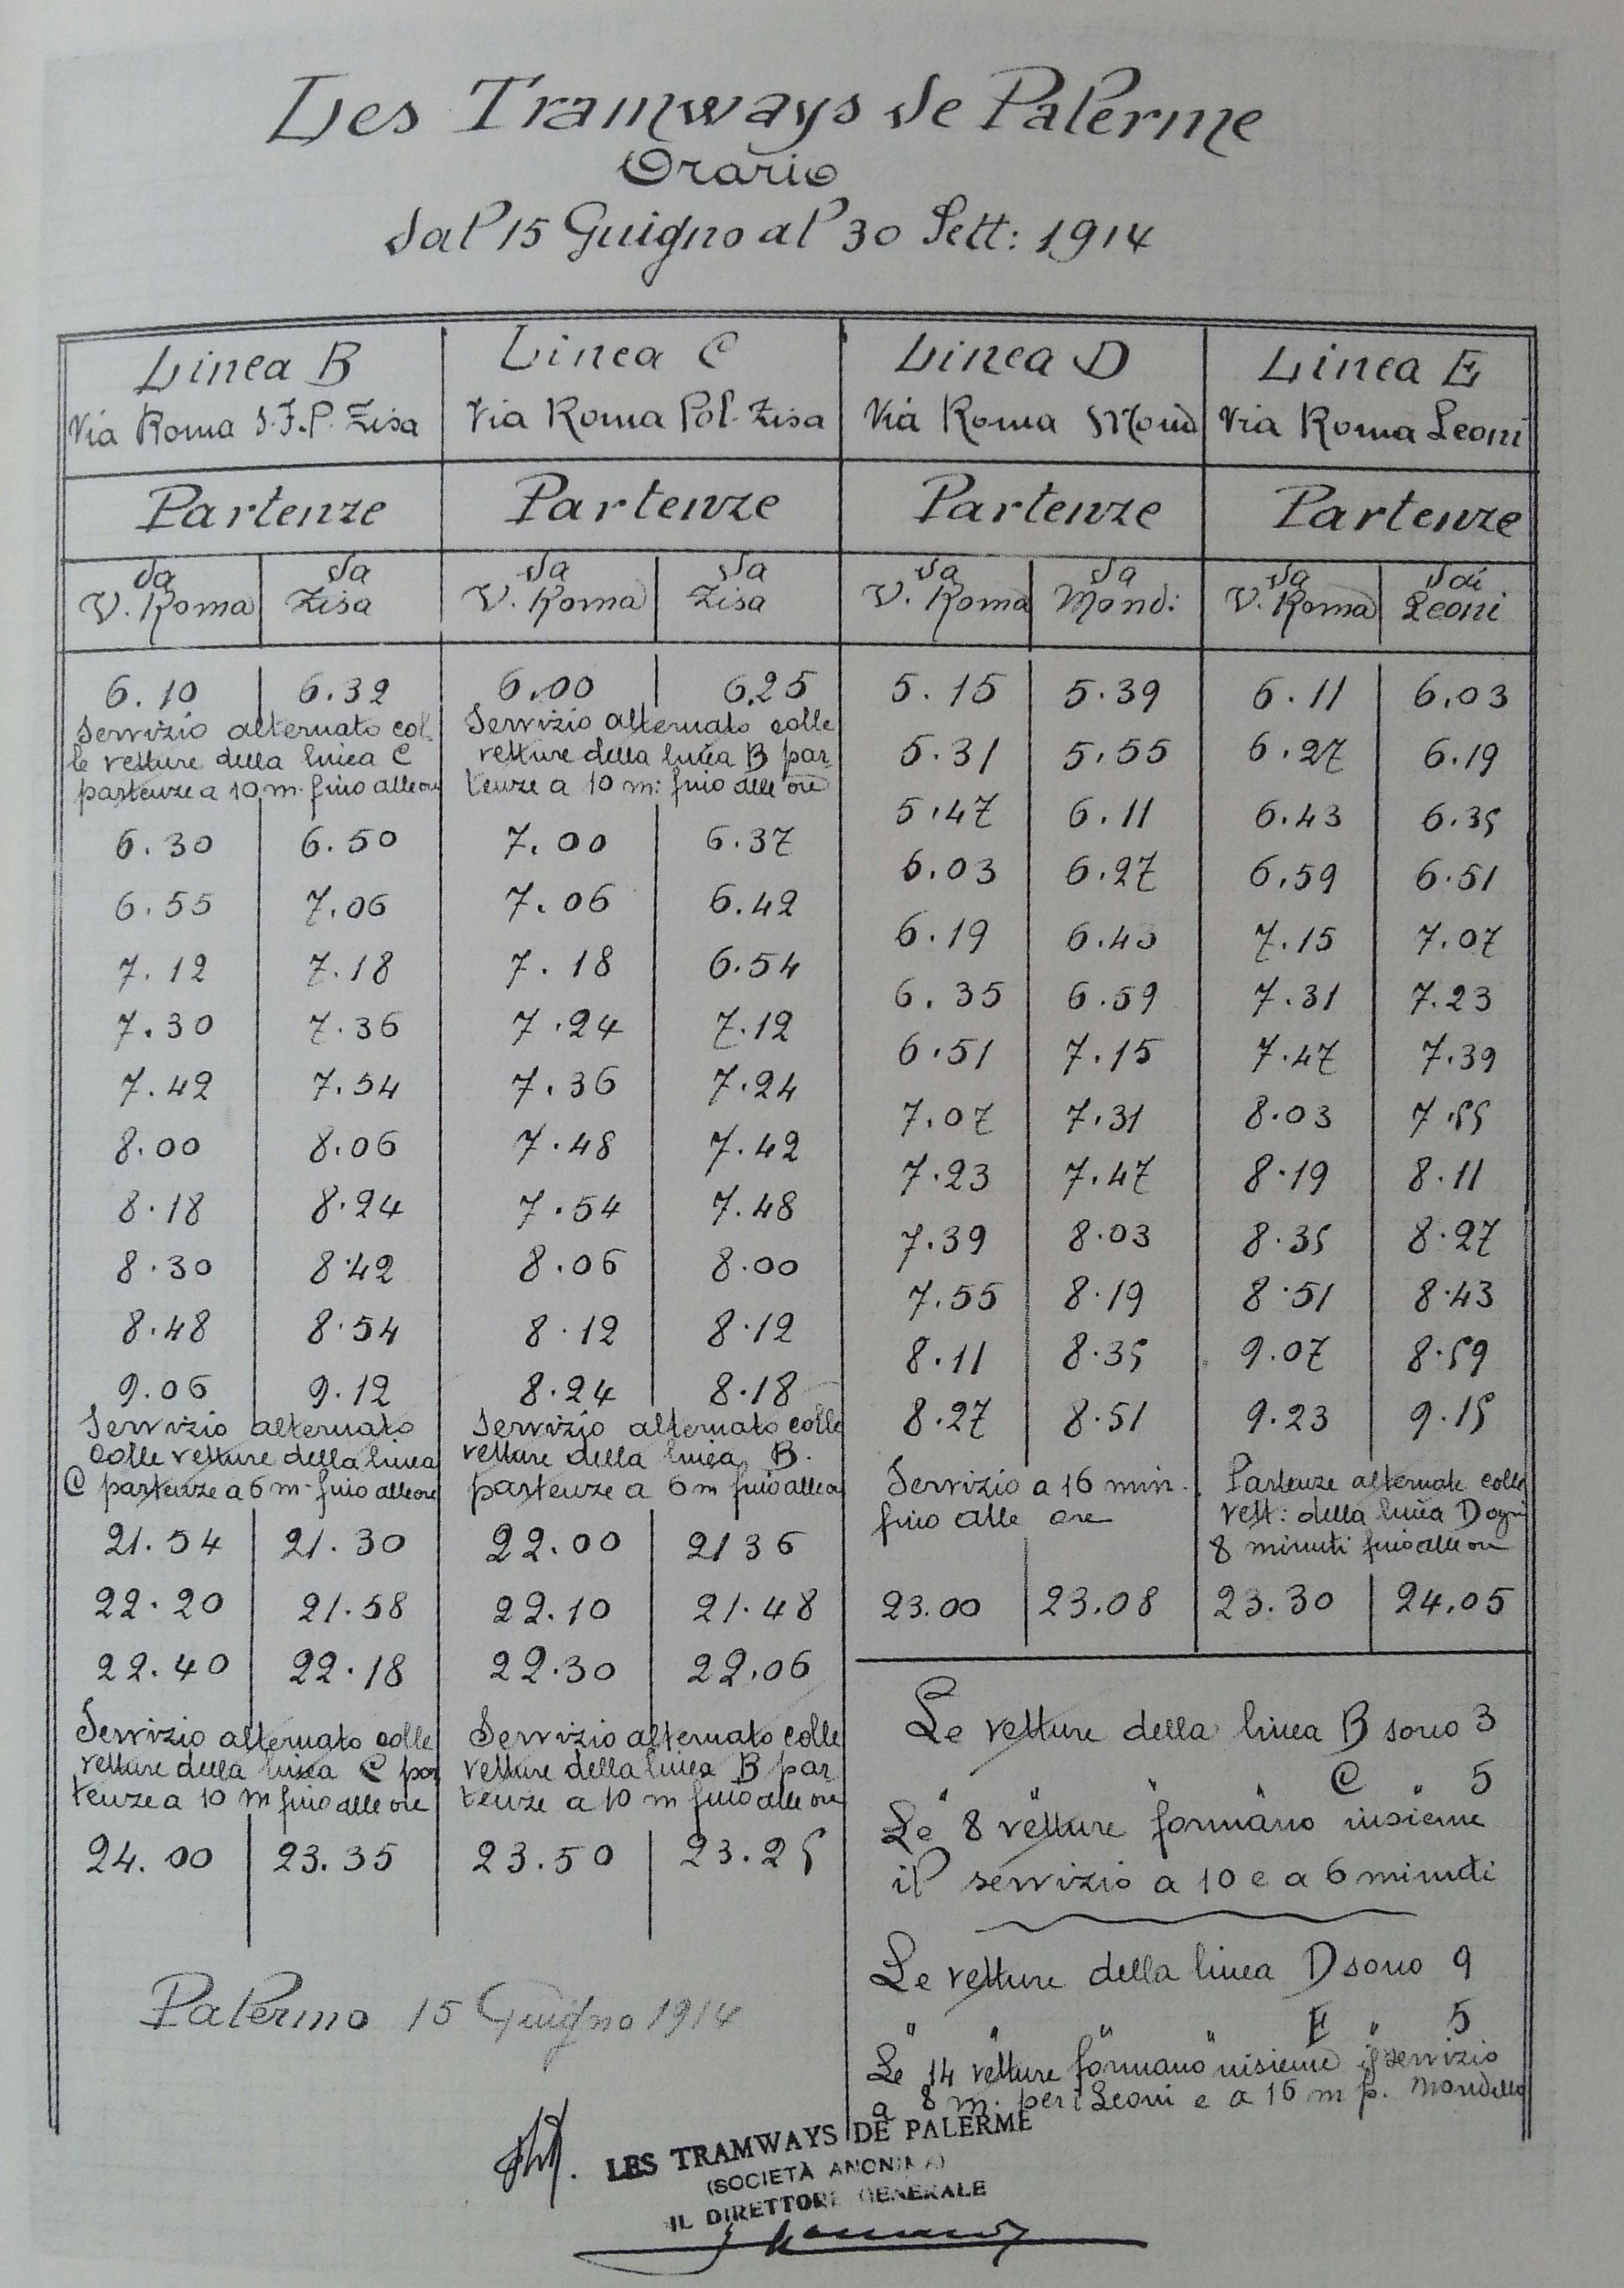 Les Tramways de Palerme
Orario
dal 15 Guigno al 30 Sett: 1914
Linea B
Via Roma S.F.P. Zisa
Partenze
da V. Roma | da Zisa
6.10 | 6.32
Servizio alternato col
le vetture della linea C
partenze a 10 m. fino alle ore
6.30 | 6.50
6.55 | 7.06
7.12 | 7.18
7.30 | 7.36
7.42 | 7.54
8.00 | 8.06
8.18 | 8.24
8.30 | 8.42
8.48 | 8.54
9.06 | 9.12
Servizio alternato
colle vetture della linea
C partenze a 6 m. fino alle ore
21.54 | 21.30
22.20 | 21.58
22.40 | 22.18
Servizio alternato colle
vetture della linea C par
tenze a 10 m fino alle ore
24.00 | 23.35
Linea C
Via Roma Pol. Zisa
Partenze
da V. Roma | da Zisa
6.00 | 6.25
Servizio alternato colle
vetture della linea B par
tenze a 10 m: fino alle ore
7.00 | 6.37
7.06 | 6.42
7.18 | 6.54
7.24 | 7.12
7.36 | 7.24
7.48 | 7.42
7.54 | 7.48
8.06 | 8.00
8.12 | 8.12
8.24 | 8.18
Servizio alternato colle
vetture della linea B.
partenze a 6 m fino alle o
22.00 | 21 36
22.10 | 21.48
22.30 | 22.06
Servizio alternato colle
vetture della linea B par
tenze a 10 m fino alle ore
23.50 | 23.25
Linea D
Via Roma Mond
Partenze
da V. Roma | da Mond:
5.15 | 5.39
5.31 | 5.55
5.47 | 6.11
6.03 | 6.27
6.19 | 6.43
6.35 | 6.59
6.51 | 7.15
7.07 | 7.31
7.23 | 7.47
7.39 | 8.03
7.55 | 8.19
8.11 | 8.35
8.27 | 8.51
Servizio a 16 min.
fino alle ore
23.00 | 23.08
Linea E
Via Roma Leoni
Partenze
da V. Roma | dai Leoni
6.11 | 6.03
6.27 | 6.19
6.43 | 6.35
6.59 | 6.51
7.15 | 7.07
7.31 | 7.23
7.47 | 7.39
8.03 | 7.55
8.19 | 8.11
8.35 | 8.27
8.51 | 8.43
9.07 | 8.59
9.23 | 9.15
Partenze alternate colle
vett: della linea D ogni
8 minuti fino alle ore
23.30 | 24.05
Le vetture della linea B sono 3
" " " " C " 5
Le 8 vetture formano insieme
il servizio a 10 e a 6 minuti
Le vetture della linea D sono 9
" " " " E " 5
Le 14 vetture formano insieme il servizio
a 8 m. per i Leoni e a 16 m p. Mondello
Palermo 15 Guigno 1914
LES TRAMWAYS DE PALERME
(SOCIETÀ ANONIMA)
IL DIRETTORE GENERALE